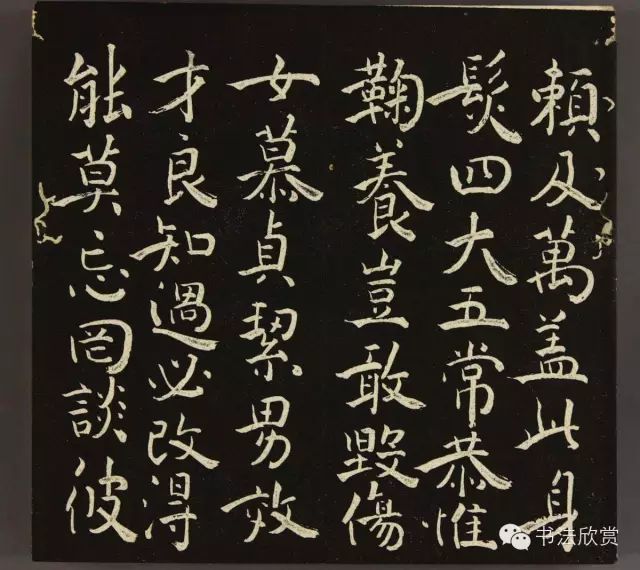 賴及萬蓋此身
髮四大五常恭惟
鞠養豈敢毀傷
女慕貞絜男效
才良知過必改得
能莫忘罔談彼
书法欣赏